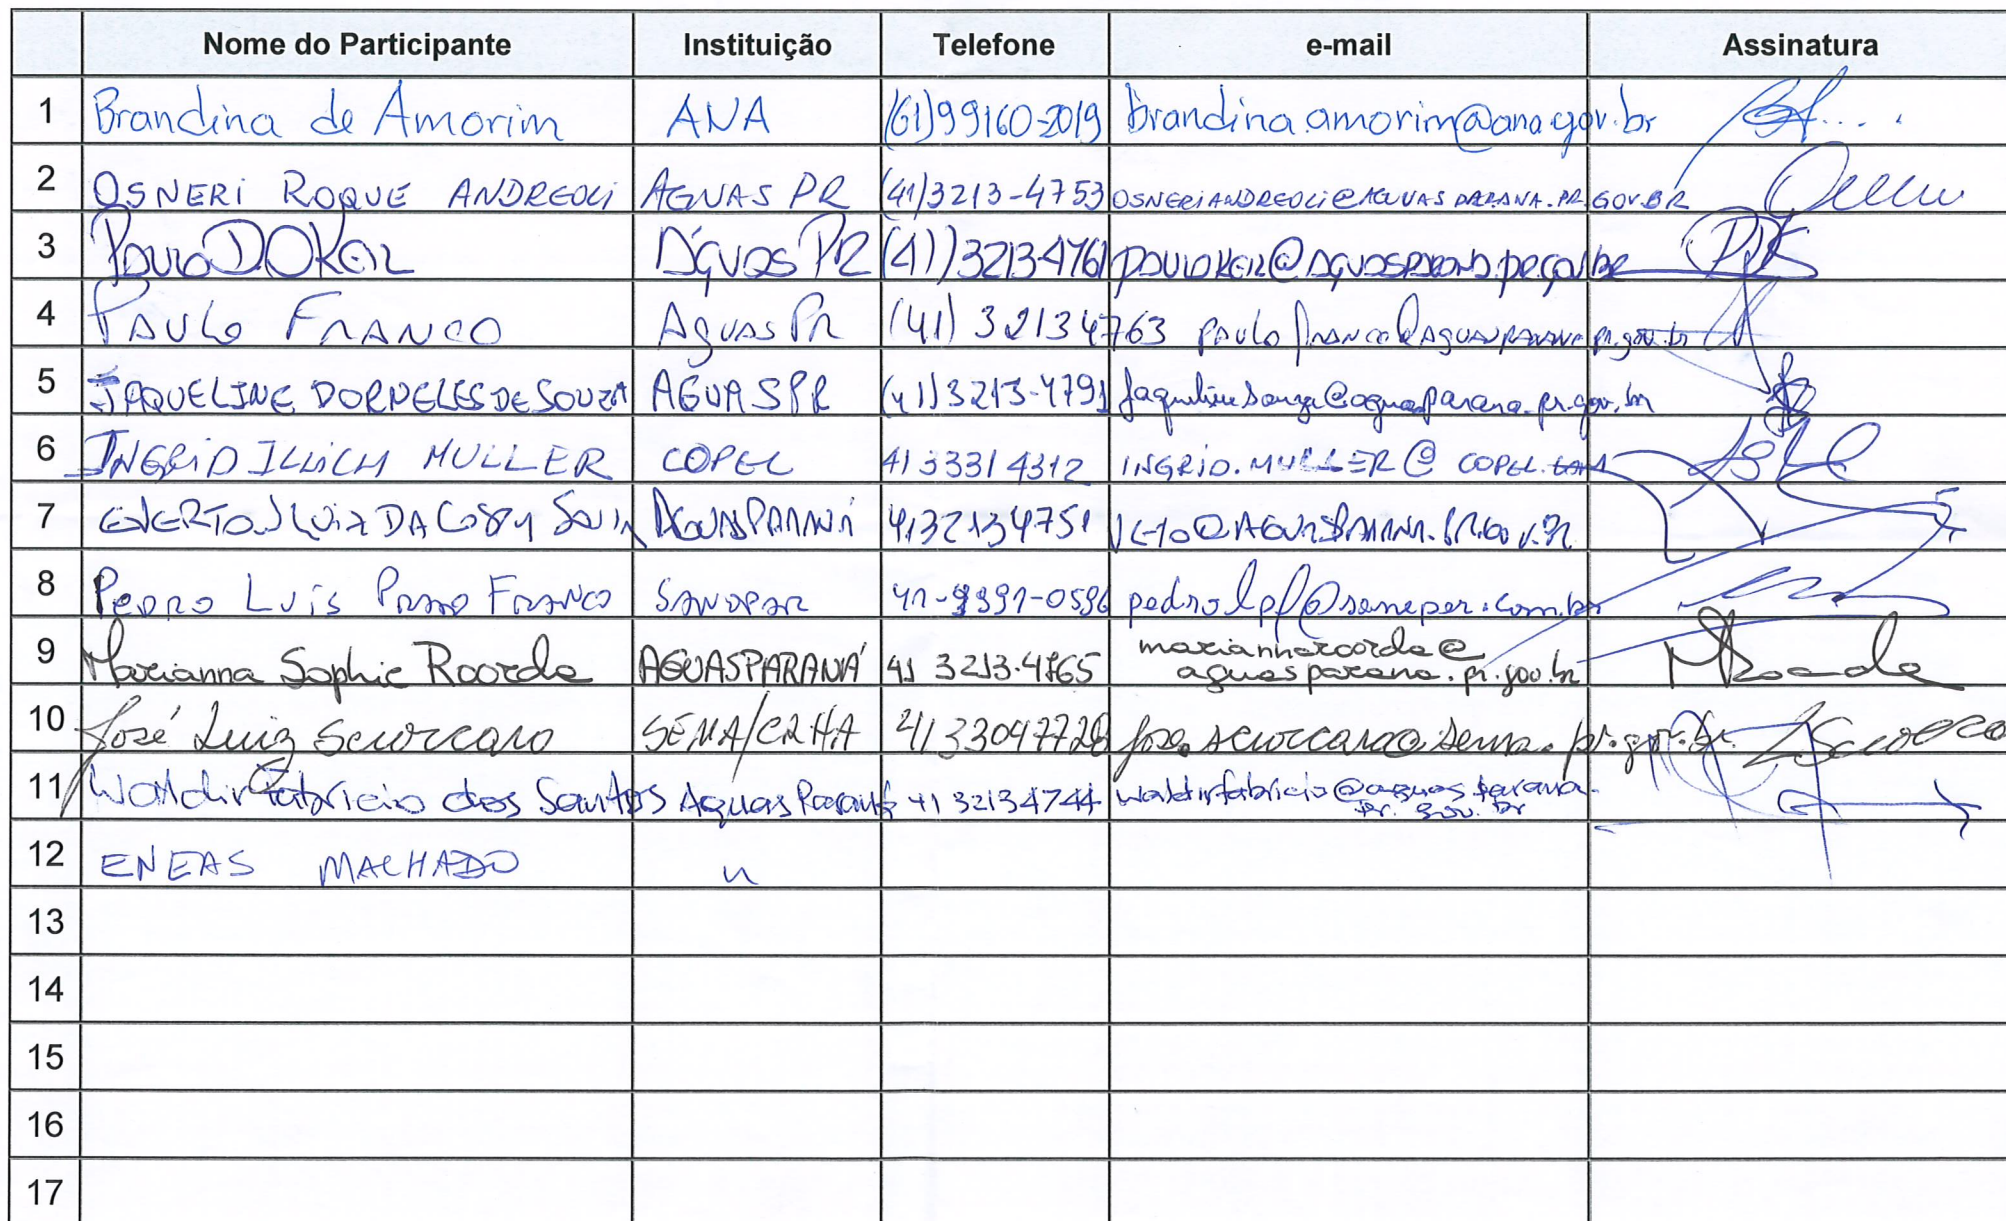 Nome do Participante Instituição Telefone e-mail Assinatura
1 Brandina de Amorim ANA (61)99160-2019 brandina.amorim@ana.gov.br
2 OSNERI ROQUE ANDREOLI AGUAS PR (41)3213-4753 OSNERIANDREOLI@AGUASPARANA.PR.GOV.BR
3 Paulo ÁGUAS PR (41)) 3213-4761
4 PAULO FRANCO AGUAS PR (41) 32134763 paulofranco@aguasparana.pr.gov.br
5 JAQUELINE DORNELES DE SOUZA AGUAS PR (41)3213-4791 jaquelinesouza@aguasparana.pr.gov.br
6 INGRID ILLICH MULLER COPEL 41 3331 4312 INGRID.MULLER@COPEL.
7 LUIZ DA COSTA AGUASPARANÁ 4132134751
8 PEDRO LUÍS PRADO FRANCO SANEPAR pedrolpf@sanepar.com.br
9 Marianna Sophie Roorda AGUASPARANÁ 41 3213-4765 mariannaroorda@
aguasparana.pr.gov.br
10 José Luiz Scroccaro SEMA/CRHA 41 33047728 jose.scroccaro@sema.pr.gov.br
11 Waldir Fabricio dos Santos Aguas Paraná 41 32134744 waldirfabricio@aguasparana.
pr.gov.br
12 ENEAS MACHADO "
13
14
15
16
17